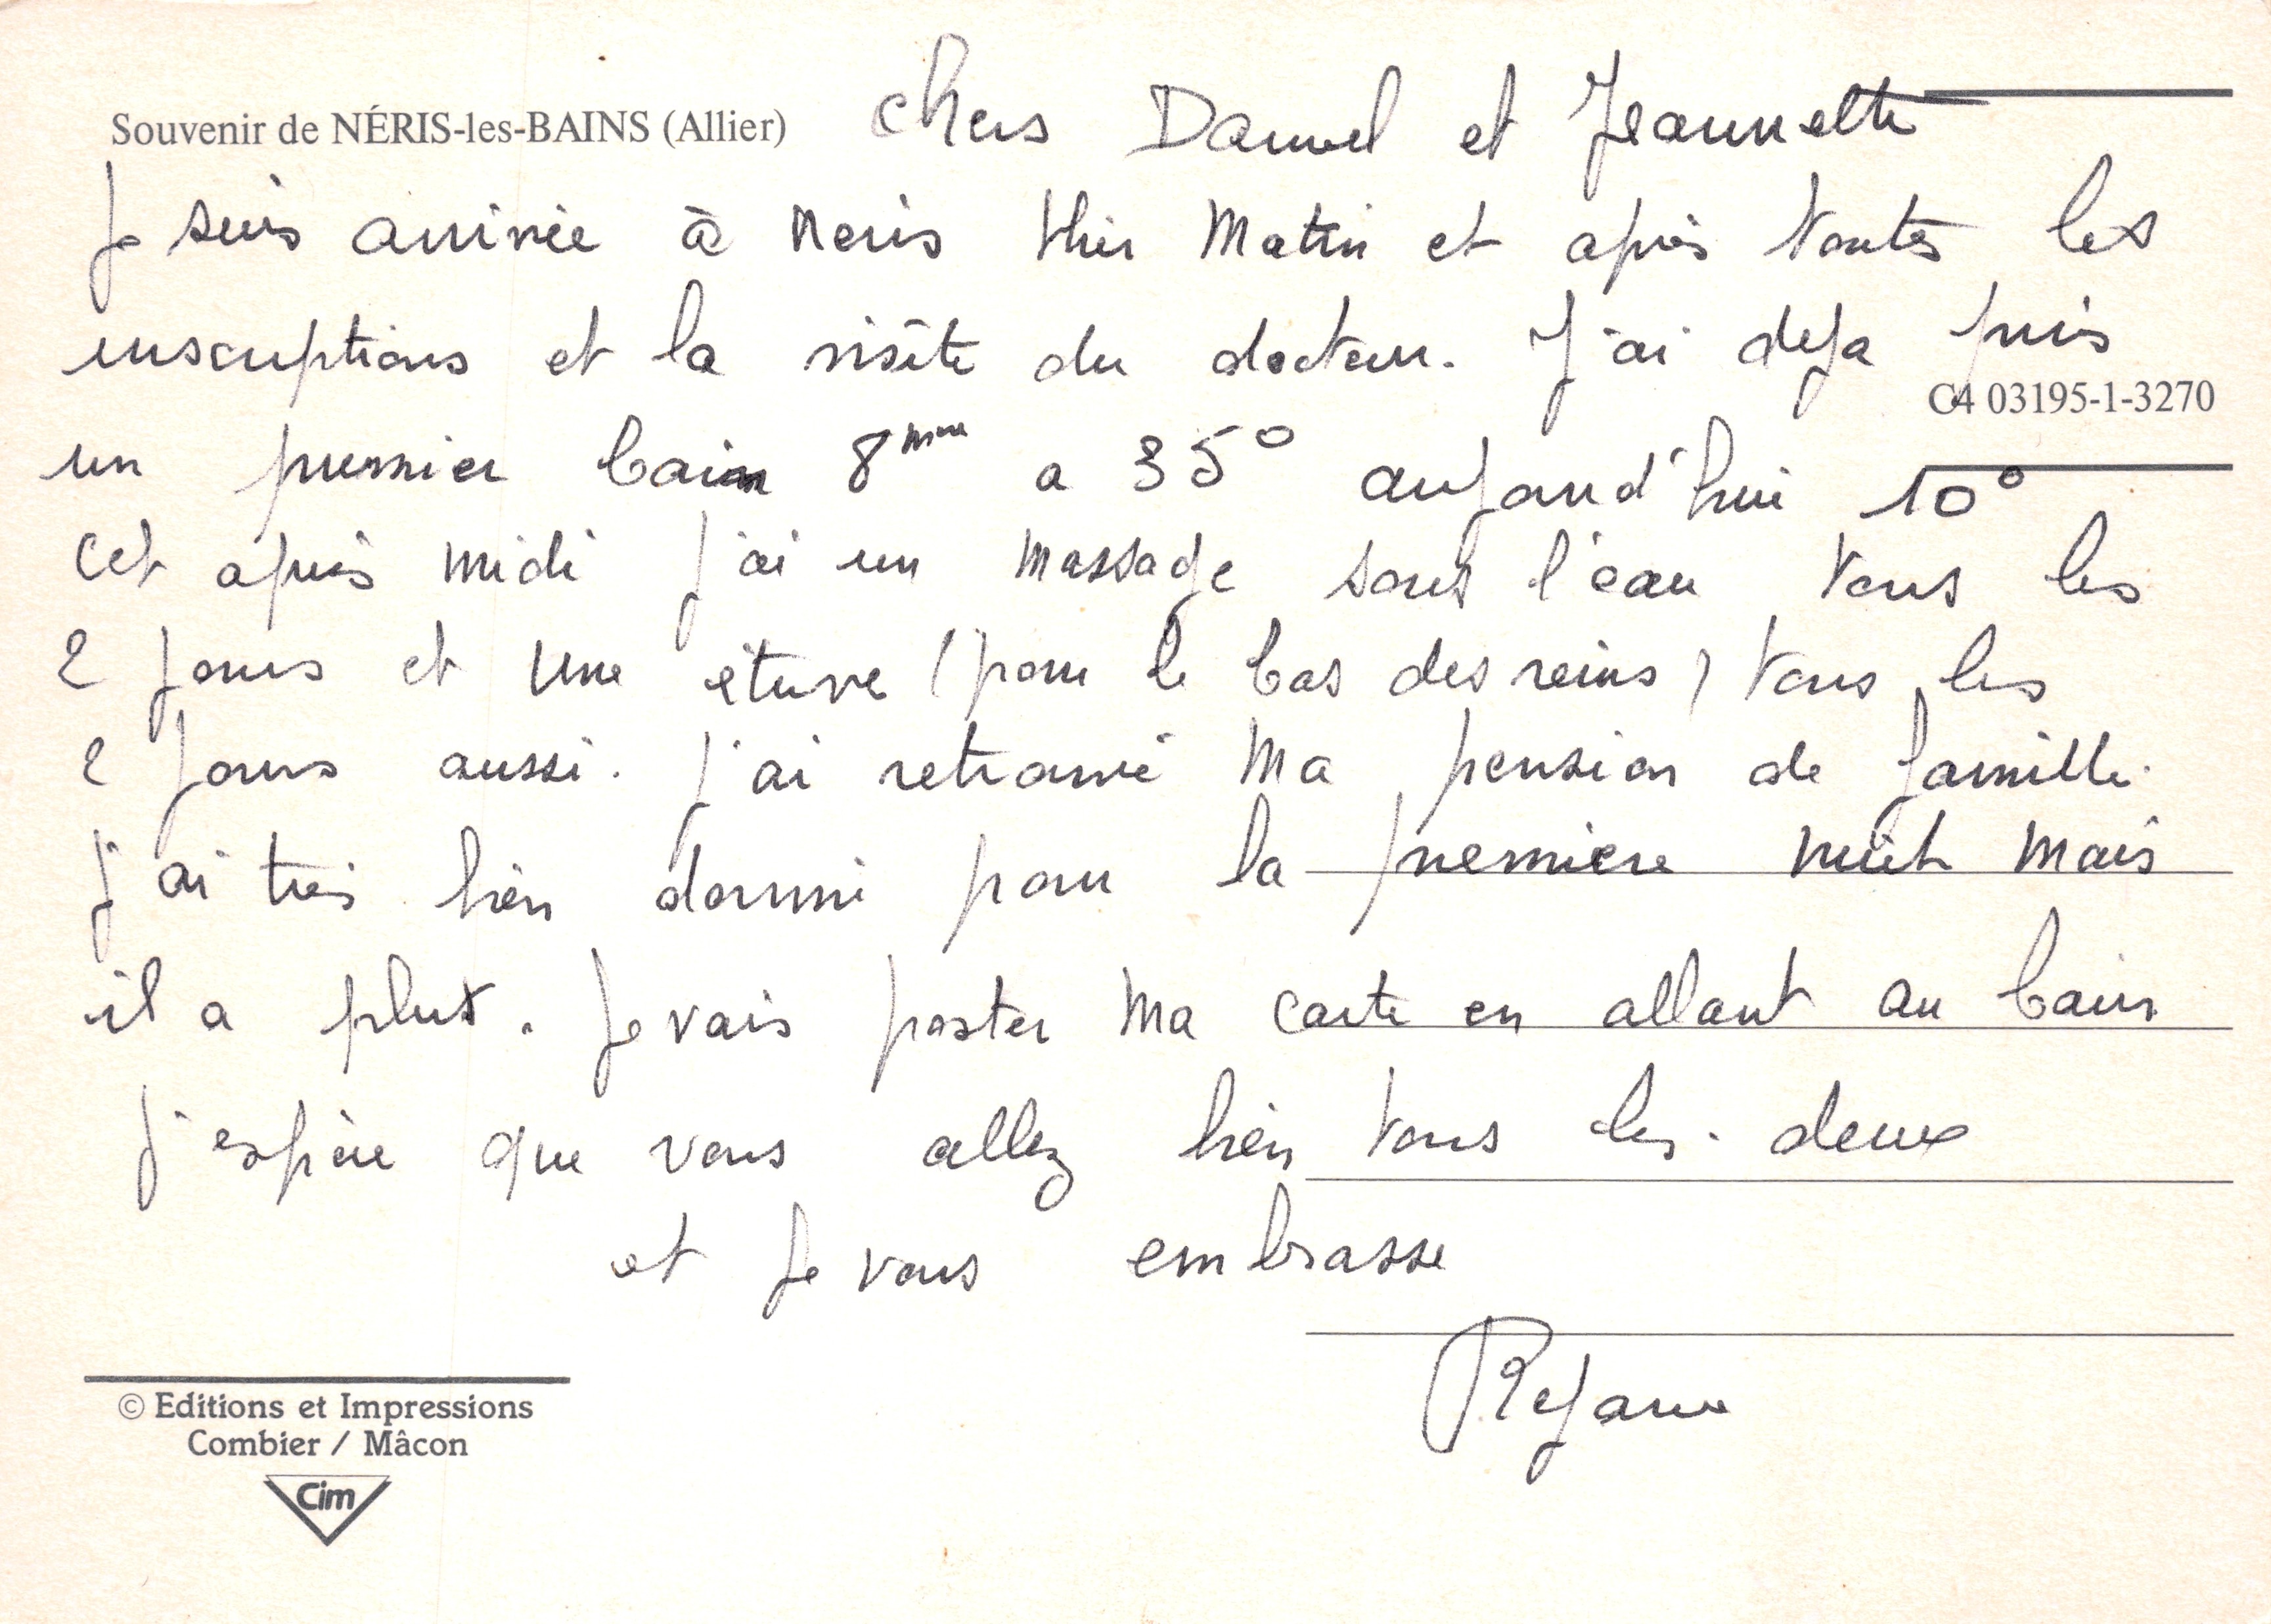 Souvenir de NÉRIS-les-BAINS (Allier)
Chers Daniel et Jeannette
Je suis arrivée à Neris Hier Matin et après toutes les
inscriptions et la visite du docteur. J'ai deja pris
C4 03195-1-3270
un premier bain 8mn a 35° aujourd'hui 10°
cet après midi j'ai un massage sous l'eau tous les
2 jours et une étuve (pour le bas des reins) tous les
2 jours aussi. j'ai retrouvé ma pension de famille.
j'ai très bien dormi pour la premiere nuit mais
il a plut. Je vais poster ma carte en allant au bain
J'espère que vous allez bien tous les deux
et je vous embrasse
Rejane
© Editions et Impressions
Combier / Mâcon
Cim